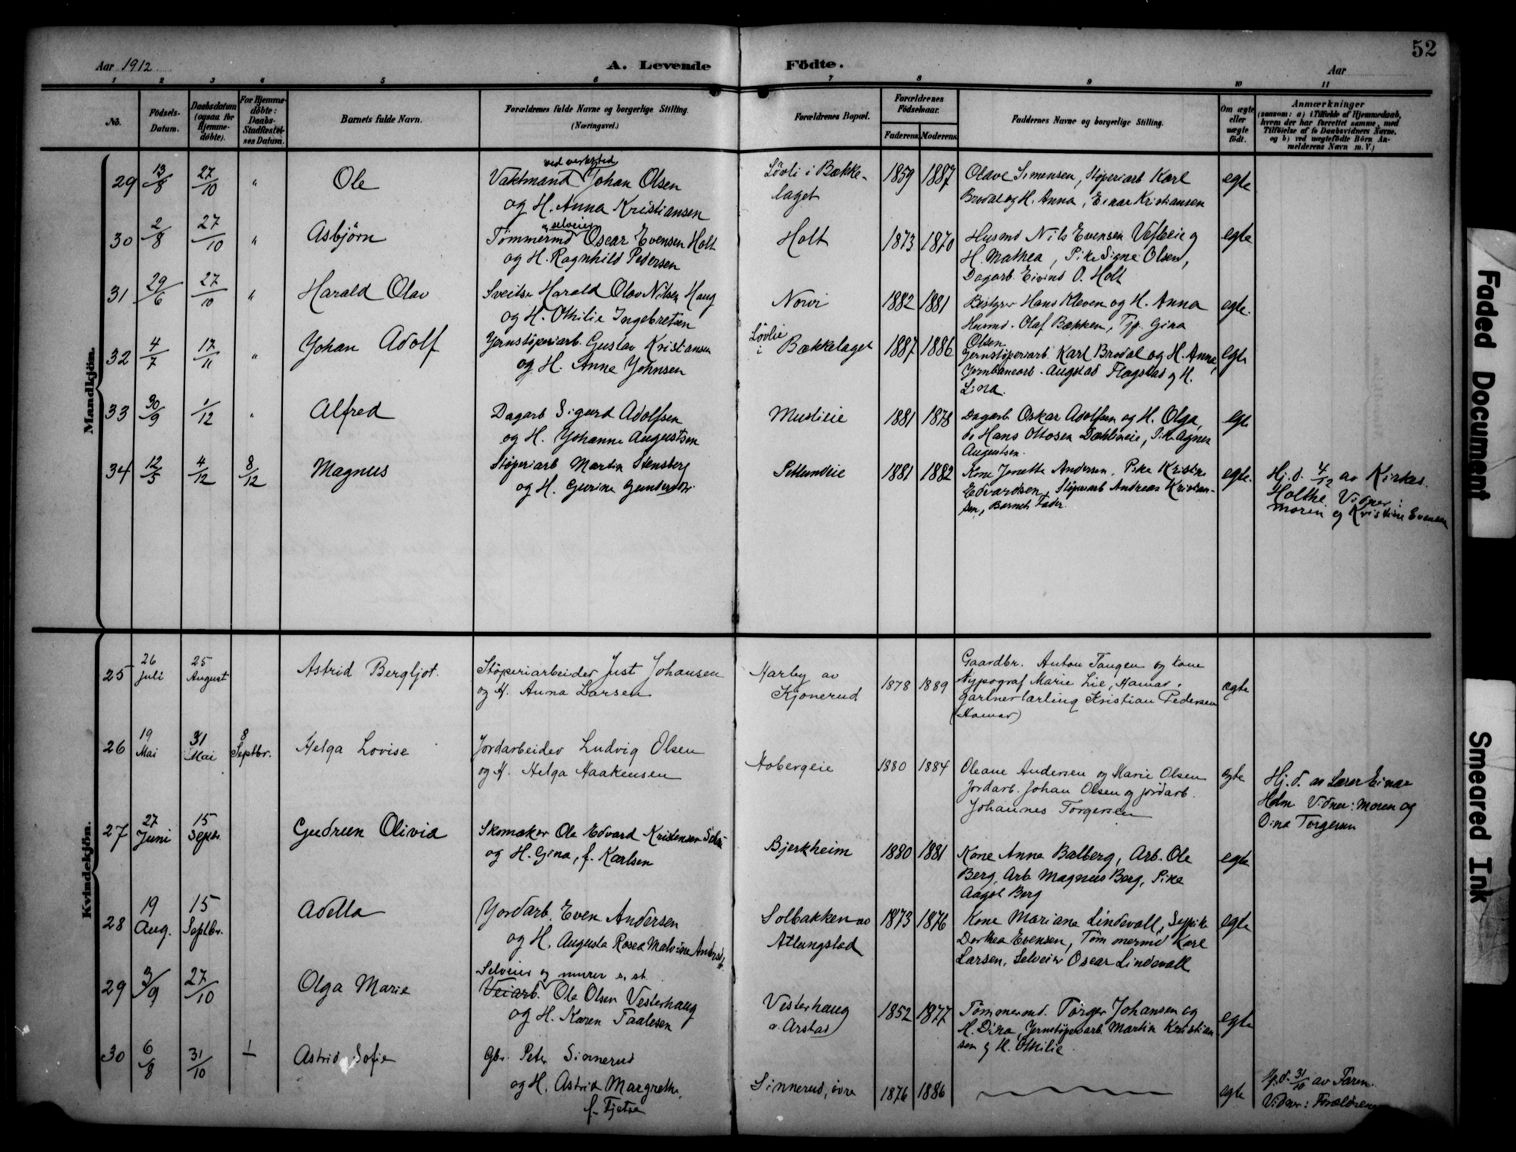 52
Aar 1912
A. Levende Födte.
Aar
1 2 3 4 5 6 7 8 9 10 11
No.
Födsels-Datum.
Daabsdatum (ogsaa for Hjemmedöbte).
For Hjemmedöbte: Daabs-Stadfæstelses Datum.
Barnets fulde Navn.
Forældrenes fulde Navne og borgerlige Stilling.
(Næringsvei.)
Forældrenes Bopæl.
Forældrenes Födselsaar.
Faderens. Moderens.
Faddernes Navne og borgerlige Stilling.
Om ægte eller uægte födt.
Anmærkninger
(saasom: a) i Tilfælde af Hjemmedaab, hvem der har forrettet samme, med Tilföielse af to Daabsvidners Navne, og b) ved uægtefödte Börn Anmelderens Navn m. V.)
Mandkjön.
29 13/8 27/10 " Ole
ved verksted
Vaktmand Johan Olsen
og H. Anna Kristiansen
Løvli i Bække-
laget
1859 1887
Olave Simensen, Støperiarb Karl
Brodal og H. Anna, Einar Kristiansen
egte
30 2/8 27/10 " Asbjørn
& selveier
Tømmermd Oscar Evensen Holt
og H. Ragnhild Pedersen
Holt
1873 1870
Husmd Nils Evensen Vesleie og
H. Mathea, Pike Signe Olsen,
Dagarb Eivind O. Holt
egte
31 29/6 27/10 " Harald Olav
Sveitser Harald Olav Nilsen Haug
og H. Othilie Ingebretsen
Norvi
1882 1881
Bestyrer Hans Kleven og H. Anna
Husmd. Olaf Bækken, Tjp. Gina
Olsen
egte.
32 4/7 17/11 " Johan Adolf
Jernstøperiarb. Gustav Kristiansen
og H. Anne Johnsen
Løvlie
i Bækkelaget
1887 1886
Jernstøperiarb. Karl Brodal og H. Anna,
Jernbanearb. Augstad Flagstad og H.
Lina.
egte
33 30/9 1/12 " Alfred
Dagarb Sigurd Adolfsen
og H. Johanne Augustsen
Mustieie
1881 1878
Dagarb Oskar Adolfsen og H. Olga,
do Hans Ottosen Dahlseie, Pik. Agnes
Augustsen.
egte
34 12/5 4/12 8/12 Magnus
Støperiarb Martin Stensberg
og H. Gurine Gundersdr
1881 1882
Kone Josette Andersen. Pike Kristine
Edvardsen, Støperarb Andreas Kristian-
sen, Barnets Fader.
egte.
Hj. d. 4/12 av Kirkes.
Holthe Vidner:
Moren og Kristine Evensen
Kvindekjön.
25 26 Juli 25 August Astrid Bergljot.
Støperiarbeider Just Johansen
og H. Anna Larsen
Harby av
Kjonerud
1878 1889
Gaardbr. Anton Tangen og kone
typograf Marie Lie, Hamar,
gartnerlærling Kristian Pedersen
(Hamar)
ægte
26 19 Mai 31 Mai 8 Septbr. Helga Lovise
Jordarbeider Ludvig Olsen
og H. Helga Haakensen
Hobergeie
1880 1884
Oleane Andersen og Marie Olsen
Jordarb. Johan Olsen og jordarb.
Johannes Torgersen
egte
Hj. d. av Lærer Einar
Holm Vidner: Moren og
Dina Torgersen
27 27 Juni 15 Septr Gudrun Olivia
Skomaker Ole Edvard Kristensen
og H. Gina, f. Karlsen
Bjerkheim
1880 1881
Kone Anna Balberg, Arb. Ole
Berg, Arb Magnus Berg, Pike
Aagot Berg
egte
28 19 Aug. 15 Septbr. Adella
Jordarb. Even Andersen
og H. Augusta Rosea Malvine
Solbakken
Atlungstad
1873 1876
Kone Mariane Lindevall, Sypike
Dorthea Evensen, Tømmermd Karl
Larsen, Selveier Oscar Lindevall
egte
29 3/9 27/10 Olga Marie
Selveier og murer s. st.
Veiarb. Ole Olsen Vesterhaug
og H. Karen Taalesen
Vesterhaug
a. Arstad
1852 1877
Tømmermd. Torger Johansen og
H. Dina, Jernstøperiarb Martin Kristian
sen og H. Othilie
egte
30 6/8 31/10 Astrid Sofie
Gbr. Peter Sinnerud
og H. Astrid Margrethe,
f. Fjetre
Sinnerud, øvre
1876 1886
egte
Hj. d. 31/10 av Faren.
Vidner: Forældrene
Faded Document
Smeared Ink